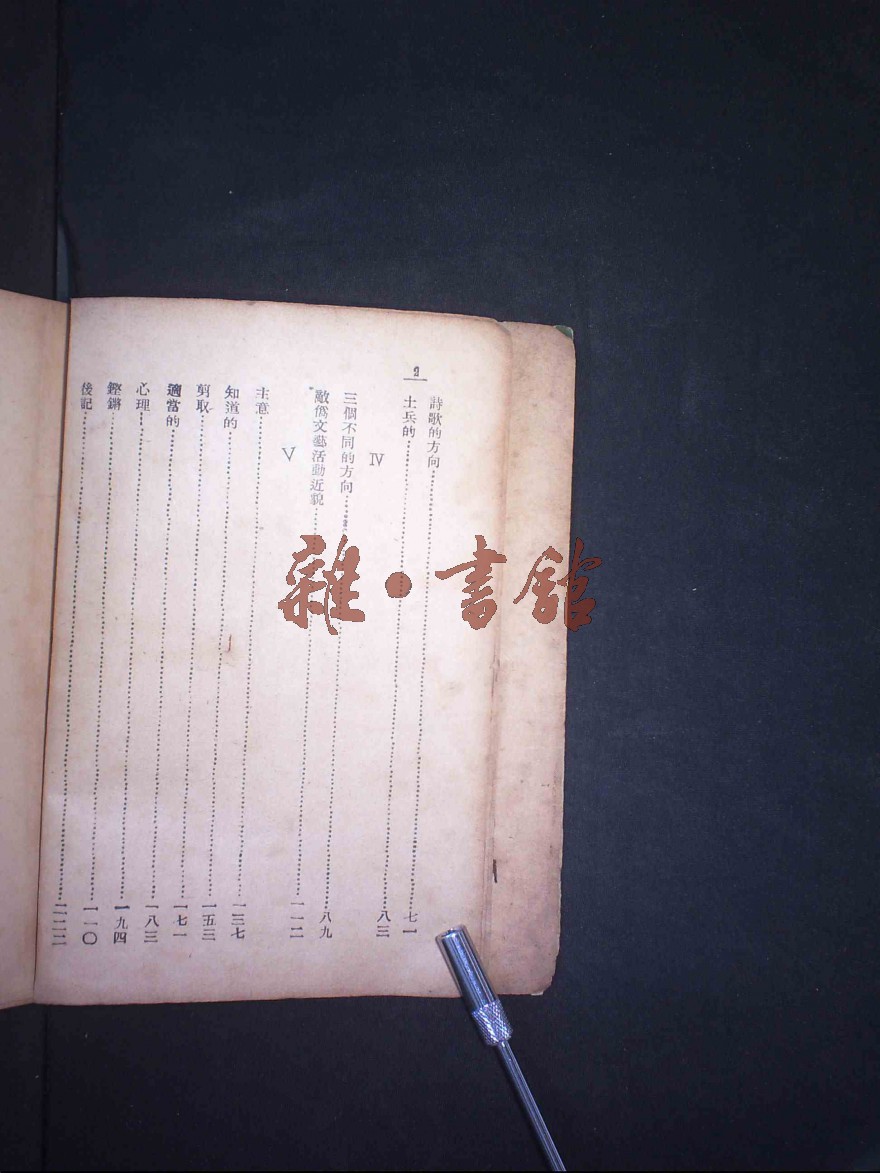 2
詩歌的方向……七一
士兵的……八三
Ⅳ
三個不同的方向……八九
敵僞文藝活動近貌……一一二
Ⅴ
主意……一三七
知道的……一五三
剪取……一七一
適當的……一八三
心理……一九四
鏗鏘……二一〇
後記……二二二
雜·書館